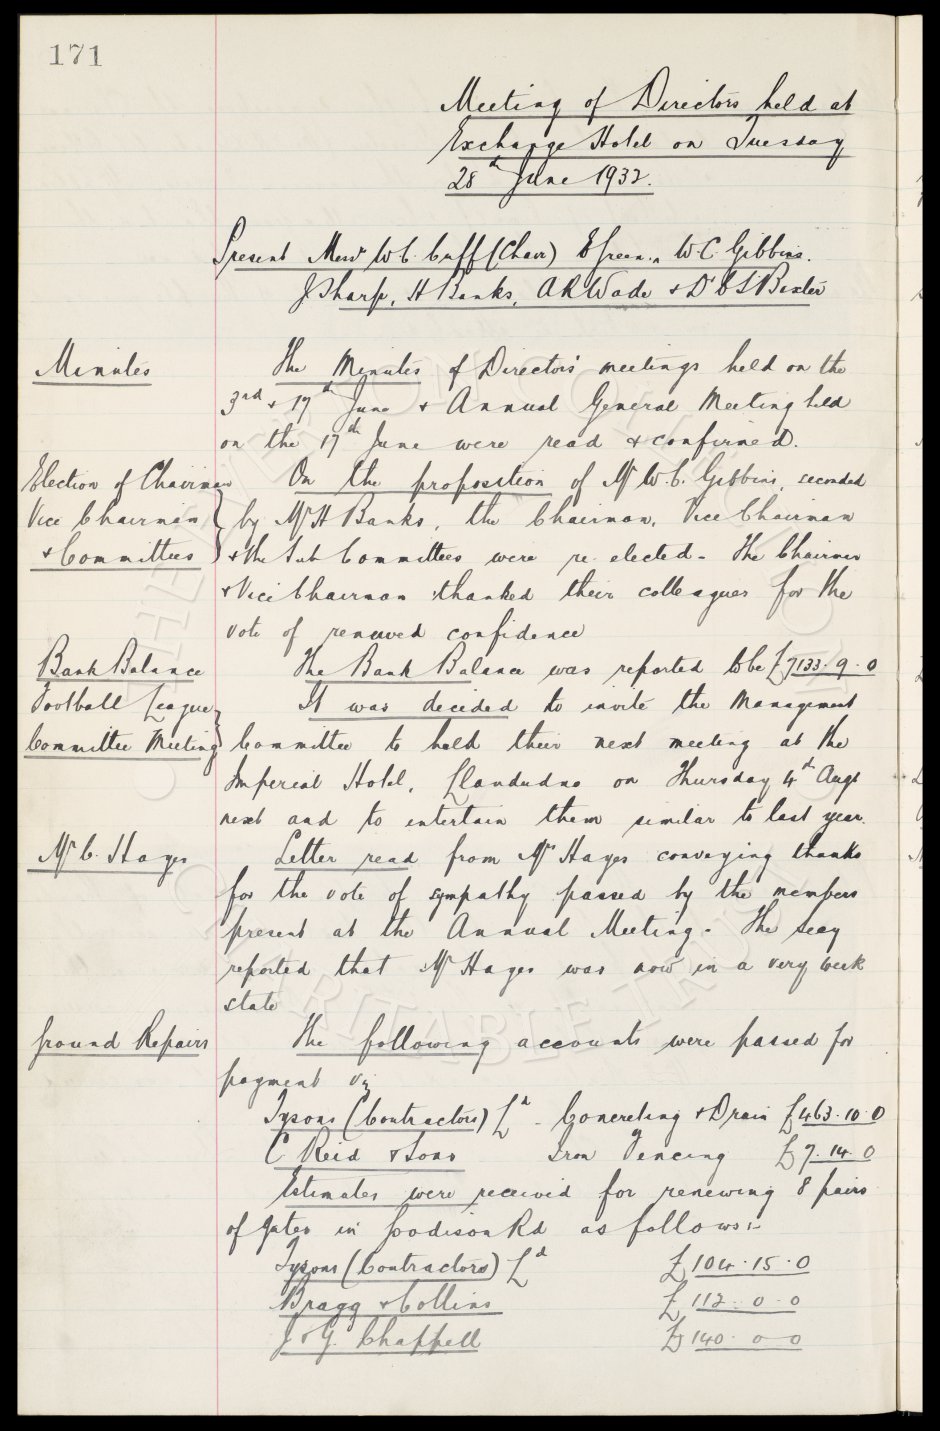 171
Meeting of Directors held at
Exchange Hotel on Tuesday
28th June 1932.
Present Messrs W.C. Cuff (Chair) E Green, W.C. Gibbins.
J Sharp, H Banks, A R Wade & Dr C S Baxter
Minutes The Minutes of Directors' meetings held on the
3rd & 17th June & Annual General Meeting held
on the 17th June were read & confirmed.
Election of Chairman On the proposition of Mr W.C. Gibbins, seconded
Vice Chairman by Mr H Banks, the Chairman, Vice Chairman
& Committees & the Sub Committees were re-elected - The Chairman
& Vice Chairman thanked their colleagues for the
vote of renewed confidence
Bank Balance The Bank Balance was reported to be £7133.9.0
Football League It was decided to invite the Management
Committee Meeting Committee to hold their next meeting at the
Imperial Hotel, Llandudno on Thursday 4th Augt
next and to entertain them similar to last year.
Mr C. Hayes Letter read from Mr Hayes conveying thanks
for the vote of sympathy passed by the members
present at the Annual Meeting. The Secy
reported that Mr Hayes was now in a very weak
state
Ground Repairs The following accounts were passed for
payment viz
Tysons (Contractors) Ld - Concreting & Drain £463.10.0
C Reid & Sons Iron Fencing £7.14.0
Estimates were received for renewing 8 pairs
of gates in Goodison Rd as follows:-
Tysons (Contractors) Ld £104.15.0
Bragg & Collins £112.0.0
J & G. Chappell £140.0.0